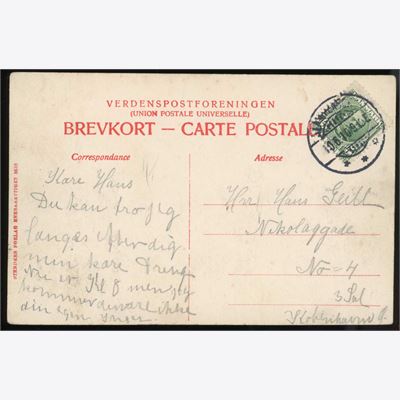 VERDENSPOSTFORENINGEN
(UNION POSTALE UNIVERSELLE)
BREVKORT — CARTE POSTALE
Correspondance
Adresse
Kære Hans
Du kan tro jeg
længes efter dig
min kære Dreng
Kl 8 men jeg
kommer desvære ikke
din egen Inger.
Hrr Hans
Nikolajgade
No = 4
3 Sal
København